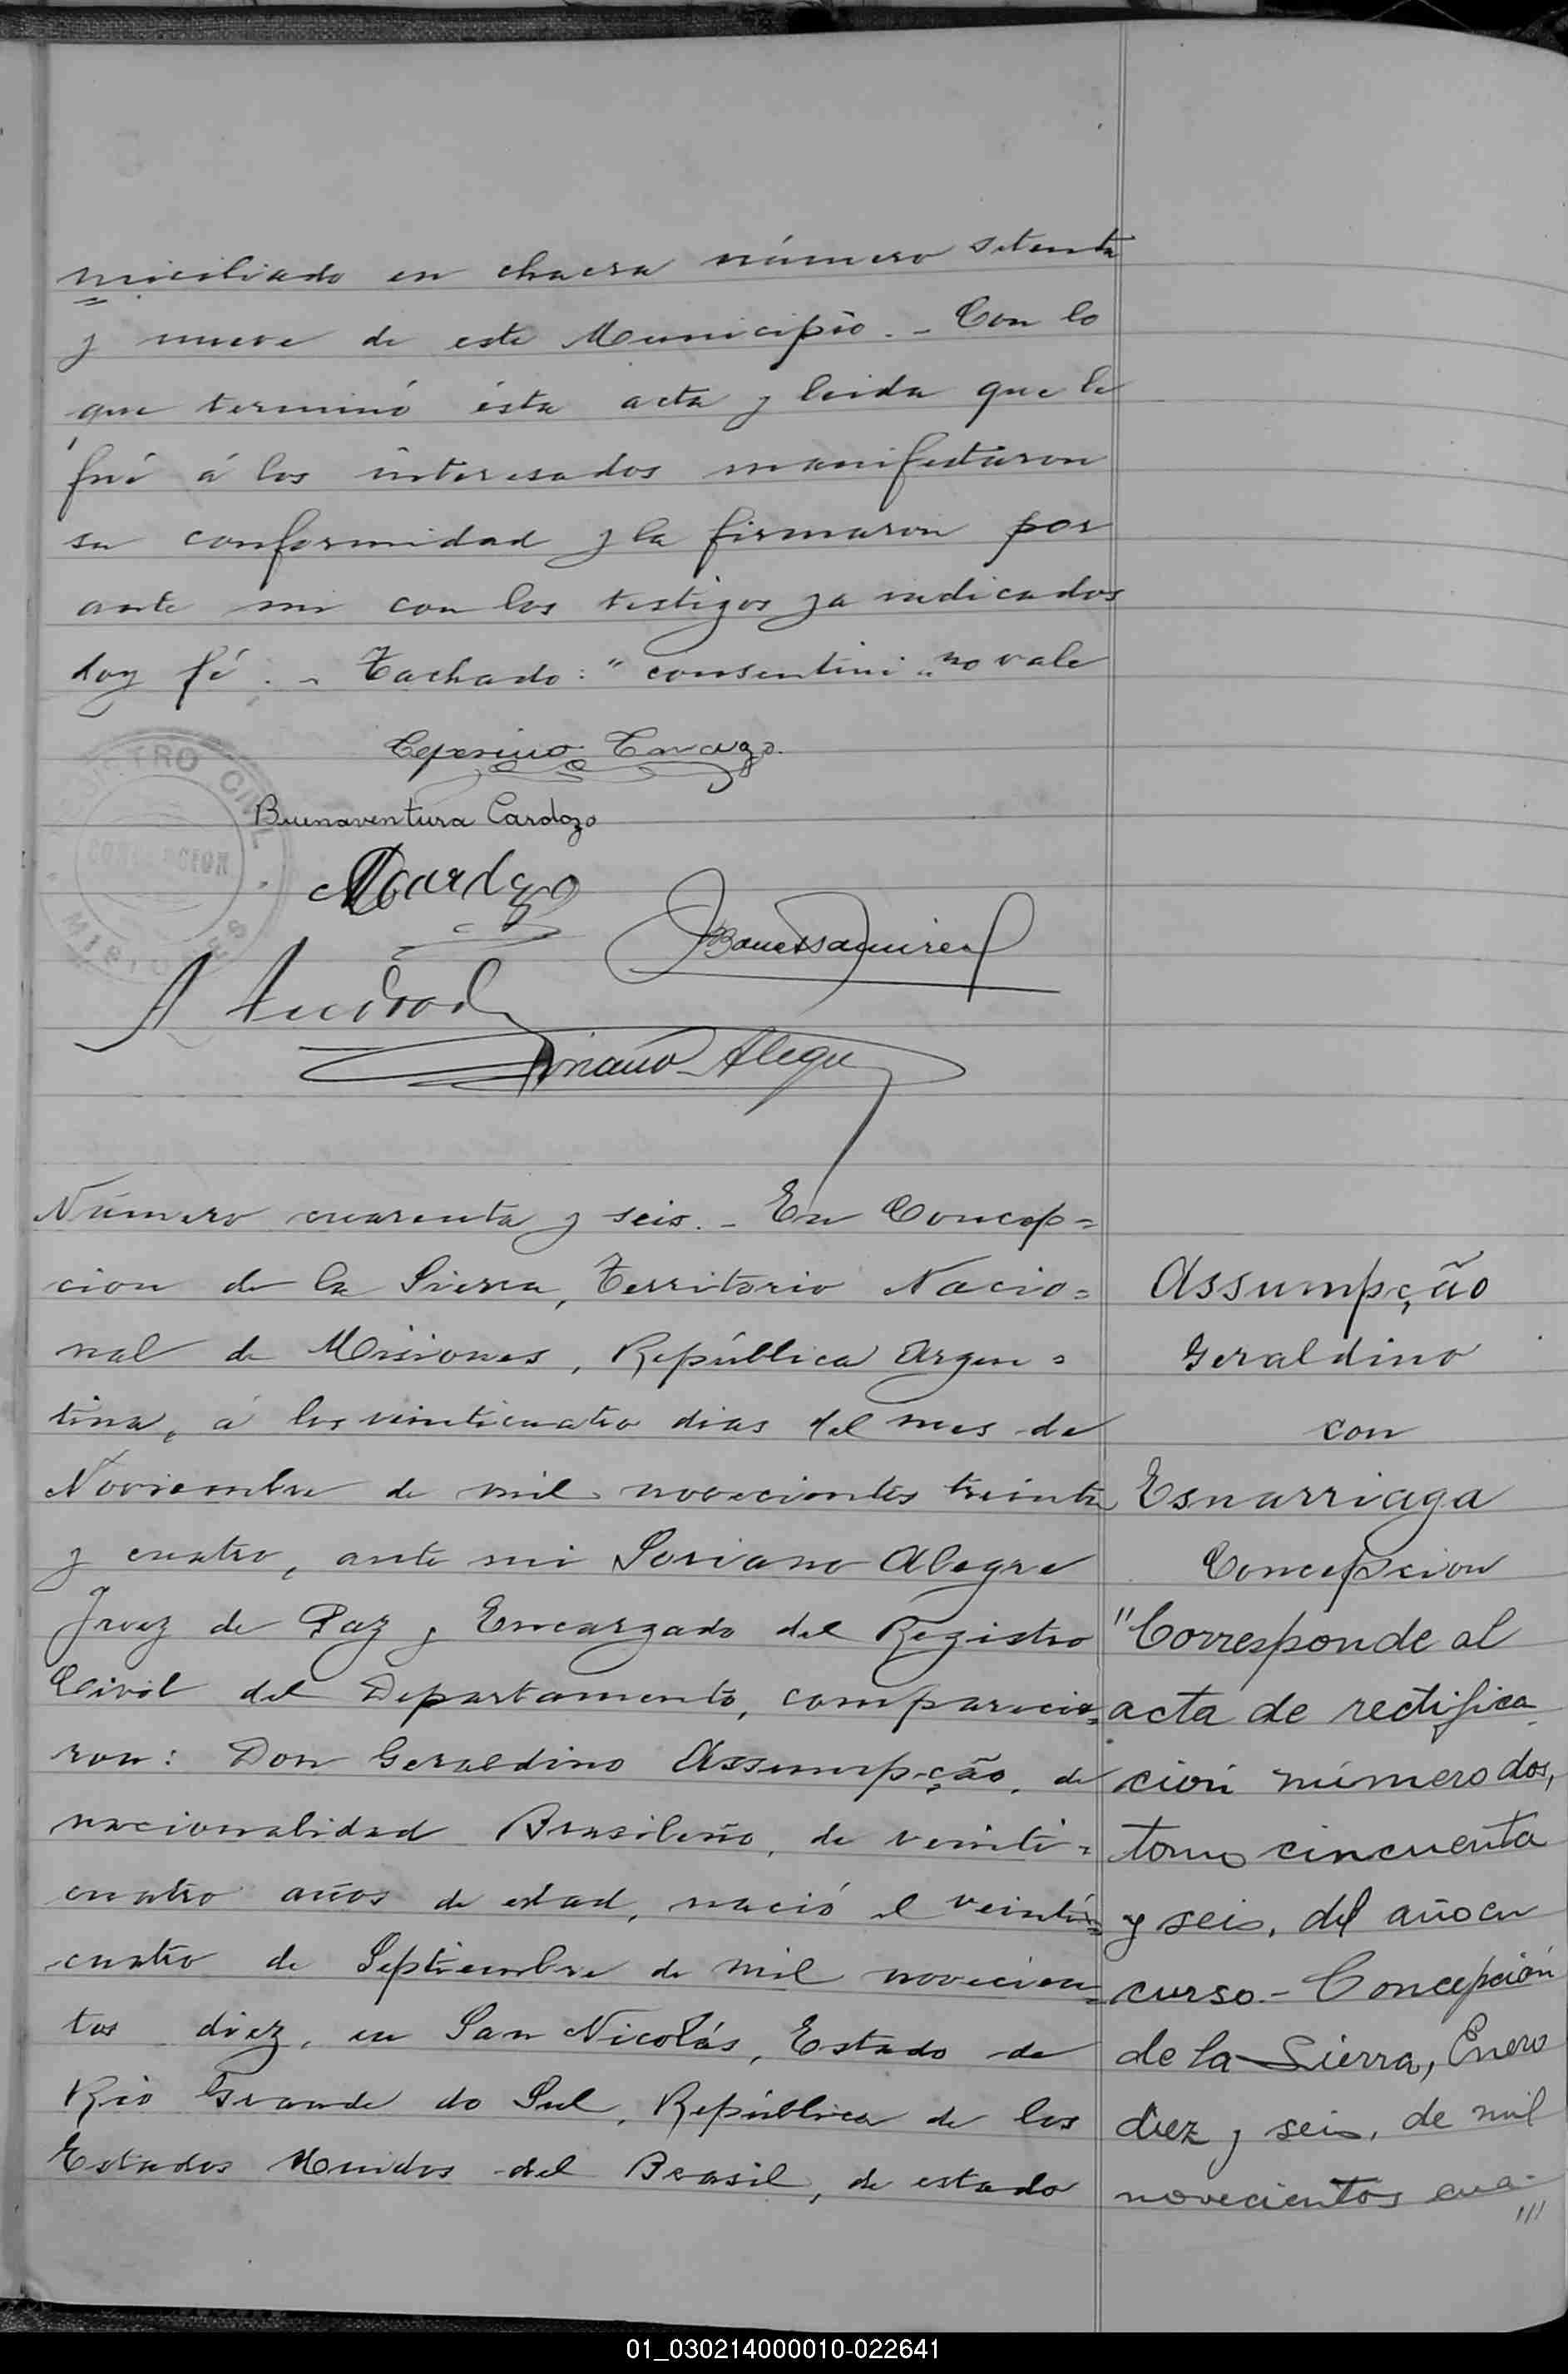 miciliado en chacra número setenta
y nueve de este Municipio. - Con lo
que terminó ésta acta y leida que le
fué á los interesados manifestaron
su conformidad y la firmaron por
ante mi con los testigos ya indicados
doy fé. - Tachado: "consentimi" no vale
REGISTRO CIVIL
CONCEPCION
MISIONES
Buenaventura Cardozo
MCardozo
A Andrad
Soriano Alegre
Número cuarenta y seis. - En Concep=
cion de la Sierra, Territorio Nacio=
nal de Misiones, República Argen=
tina, á los veinticuatro dias del mes de
Noviembre de mil novecientos treinta
y cuatro, ante mi Soriano Alegre
Juez de Paz y Encargado del Registro
Civil del Departamento, comparecie=
ron: Don Geraldino Assumpção, de
nacionalidad Brasileño, de veinti=
cuatro años de edad, nació el veinti=
cuatro de Septiembre de mil novecien=
tos diez, en San Nicolás, Estado de
Rio Grande do Sul, República de los
Estados Unidos del Brasil, de estado
Assumpção
Geraldino
con
Esnarriaga
Concepcion
"Corresponde al
acta de rectifica
ción número dos,
tomo cincuenta
y seis, del año en
curso.- Concepción
de la Sierra, Enero
diez y seis, de mil
novecientos cua-
///
01_030214000010-022641